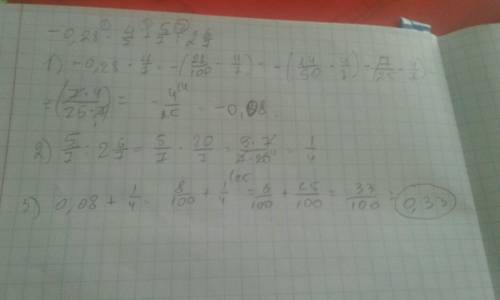 1) -0,28 · 4/7 = -(28/100 · 4/7) = -(14/50 · 4/7) = -(7/25 · 4/7)
= -(7·4/25·7) = -4/25 = -0,08
2) 5/7 : 2 6/7 = 5/7 : 20/7 = 5·7/7·20 = 1/4
3) 0,08 + 1/4 = 8/100 + 1/4 = 8/100 + 25/100 = 33/100 = 0,33